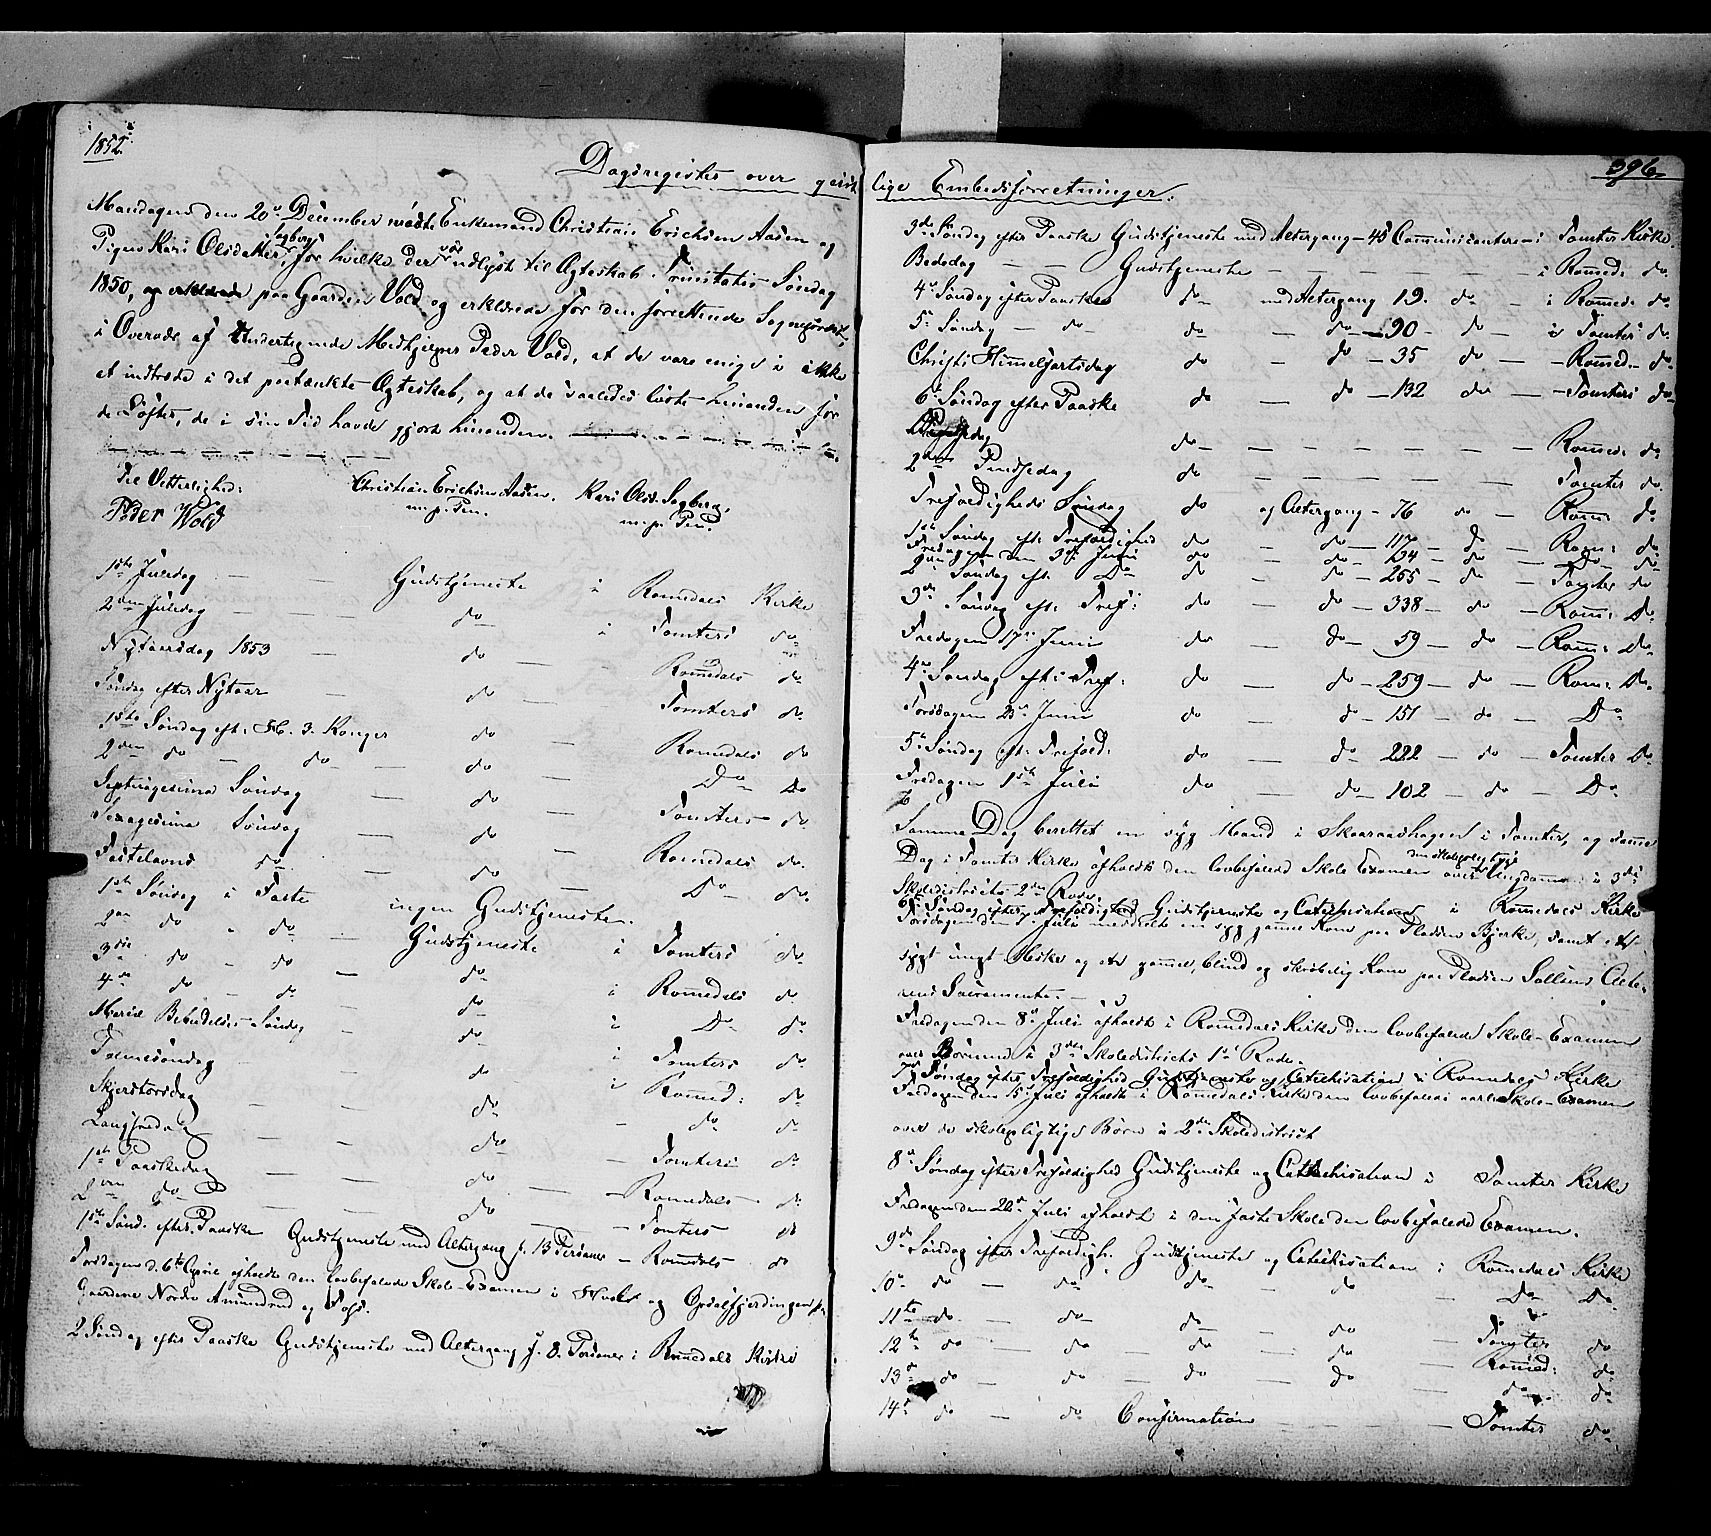 1852.
Dagsregister over geist
Mandagen den 20de December mødte Enkemand Christian Erichsen Aasen og
Pigen Kari Olsdatter Sagberg, for hvilke der var udlyst til Ægteskab Trinitatis Søndag
1850, og erklærede paa Gaarden Vold og erklærede for den forrettende Sognepræst,
i Overvær af Undertegnede Medhjelper Peder Vold, at de vare enige i ikke
at indtræde i det paatænkte Ægteskab, og at de saaledes løste hinanden for
de Løfter, de i sin Tid havde gjort hinanden.
Til Vitterlighed:
Peder Wold
Christian Erichsen Aasen.
m. p. Pen.
Kari Olsd. Sagberg,
m. p. Pen.
1ste Juledag — Gudstjeneste i Romedals Kirke
2den Juledag — do — i Tomters do
Nytaarsdag 1853 — do — Romedals do
Søndag efter Nytaar — do — Tomters do
1ste Søndag eft. H. 3. Konger do — Romedals do
2den do — do — do — Do Do
Septuagesima Søndag — do — Tomters do
Sexagesima Søndag — do — Romedals do
Fastelavns do — do — Do do
1ste Søndag i Faste ingen Gudstjeneste.
2den do " do — Gudstjeneste i Tomters do
3die do — do — do i Romedals do
4de do — do — do i Do do
Mariæ Bebudelses-Søndag — do i Tomters do
Palmesøndag — do i Romed: do
Skjertorsdag — do — do do
Langfredag — do — Tomters do
1ste Paaskedag — do — Romedals do
2den do — do — Tomters do
1ste Sønd. efter Paaske Gudstjeneste med Altergang f. 13 Personer — Romedals do
Torsdagen d. 6te April afholdt den lovbefalede Skole-Examen i og Opdalsfjerdingen paa
Gaardene Nordre Aamundrud og
2 Søndag efter Paaske Gudstjeneste med Altergang f. 8. Personer i Romedals Kirke
396.
lige Embedsforretninger.
3die Søndag efter Paaske Gudstjeneste med Altergang — 48 Communicantere — i Tomter Kirke.
Bededag — — Gudstjeneste — — — i Romed: do
4de Søndag efter Paaske do — med Altergang 19. do — i Romed: do
5te Søndag — do — do — do — 90 — do — i Tomter do
Christi Himmelfartsdag do — do — 35 do — Romed — do
6te Søndag efter Paaske do — do — 132 do — Tomters do
Pintsedag do — — — — Romed: do
2den Pindsedag do Tomter do
Trefoldigheds Søndag do og Altergang — 76 do — Rom: do
1ste Søndag eft: Trefoldighed do — do — 117 — do — Rom: do
Fredagen den 3die Junii do — do — 134 — do — Do — do
2den Søndag eft. Do do — do — 255 — do — Tomter do
3die Søndag eft. Tref: do — do — 338 — do — Rom: Do
Fredagen 17de Junii do — do — 59 — do — Rom: Do
4de Søndag eft: Tref: do — do — 259 — do — Rom: Do
Torsdagen 23de Junii do — do — 151 — do — Do
5te Søndag eft. Trefold: do — do — 222 — do — Tomter Do
Fredagen 1ste Julii do — do — 102 — do — Do
Samme Dag berettet en syg Mand i Skaaraashagen i Tomter, og samme
Dag i Tomter Kirke afholdt den lovbefalede Skole Examen over den skolepligtige Ungdom i 3die
Skoledistricts 2den Rode.
6te Søndag efter Trefoldighed Gudstjeneste og Catechisation i Romedals Kirke
Torsdagen den 7de Julii meddeelte en syg gammel Kone paa Pladsen Bjerke, samt et
sygt ungt Mske og en gammel, blind og skrøbelig Kone paa Pladsen Alte-
rens Sacramente. —
Fredagen den 8de Juli afholdt i Romedals Kirke den lovbefalede Skole-Examen
over Børnene i 3die Skoledistricts 1ste Rode.
7de Søndag efter Trefoldighed Gudstjeneste og Catechisation i Romedals Kirke
Fredagen den 15de Juli afholdt i Romedals Kirke den lovbefalede aarl. Skole-Examen
over de skolepligtige Børn i 2det Skoledistrict
8de Søndag efter Trefoldighed Gudstjeneste og Catechisation i Tomter Kirke
Fredagen den 22de Juli afholdt i den faste Skole den lovbefalede Examen.
9de Søndag efter Trefoldigh. Gudstjeneste og Catechisation i Romedals Kirke
10de do — do — do — do — Do Do
11te do — do — do — do — Tomter do
12te do — do — do — do — Romed: do
13de do — do — do — do — do do
14de do — do Confirmation — — — Tomter do